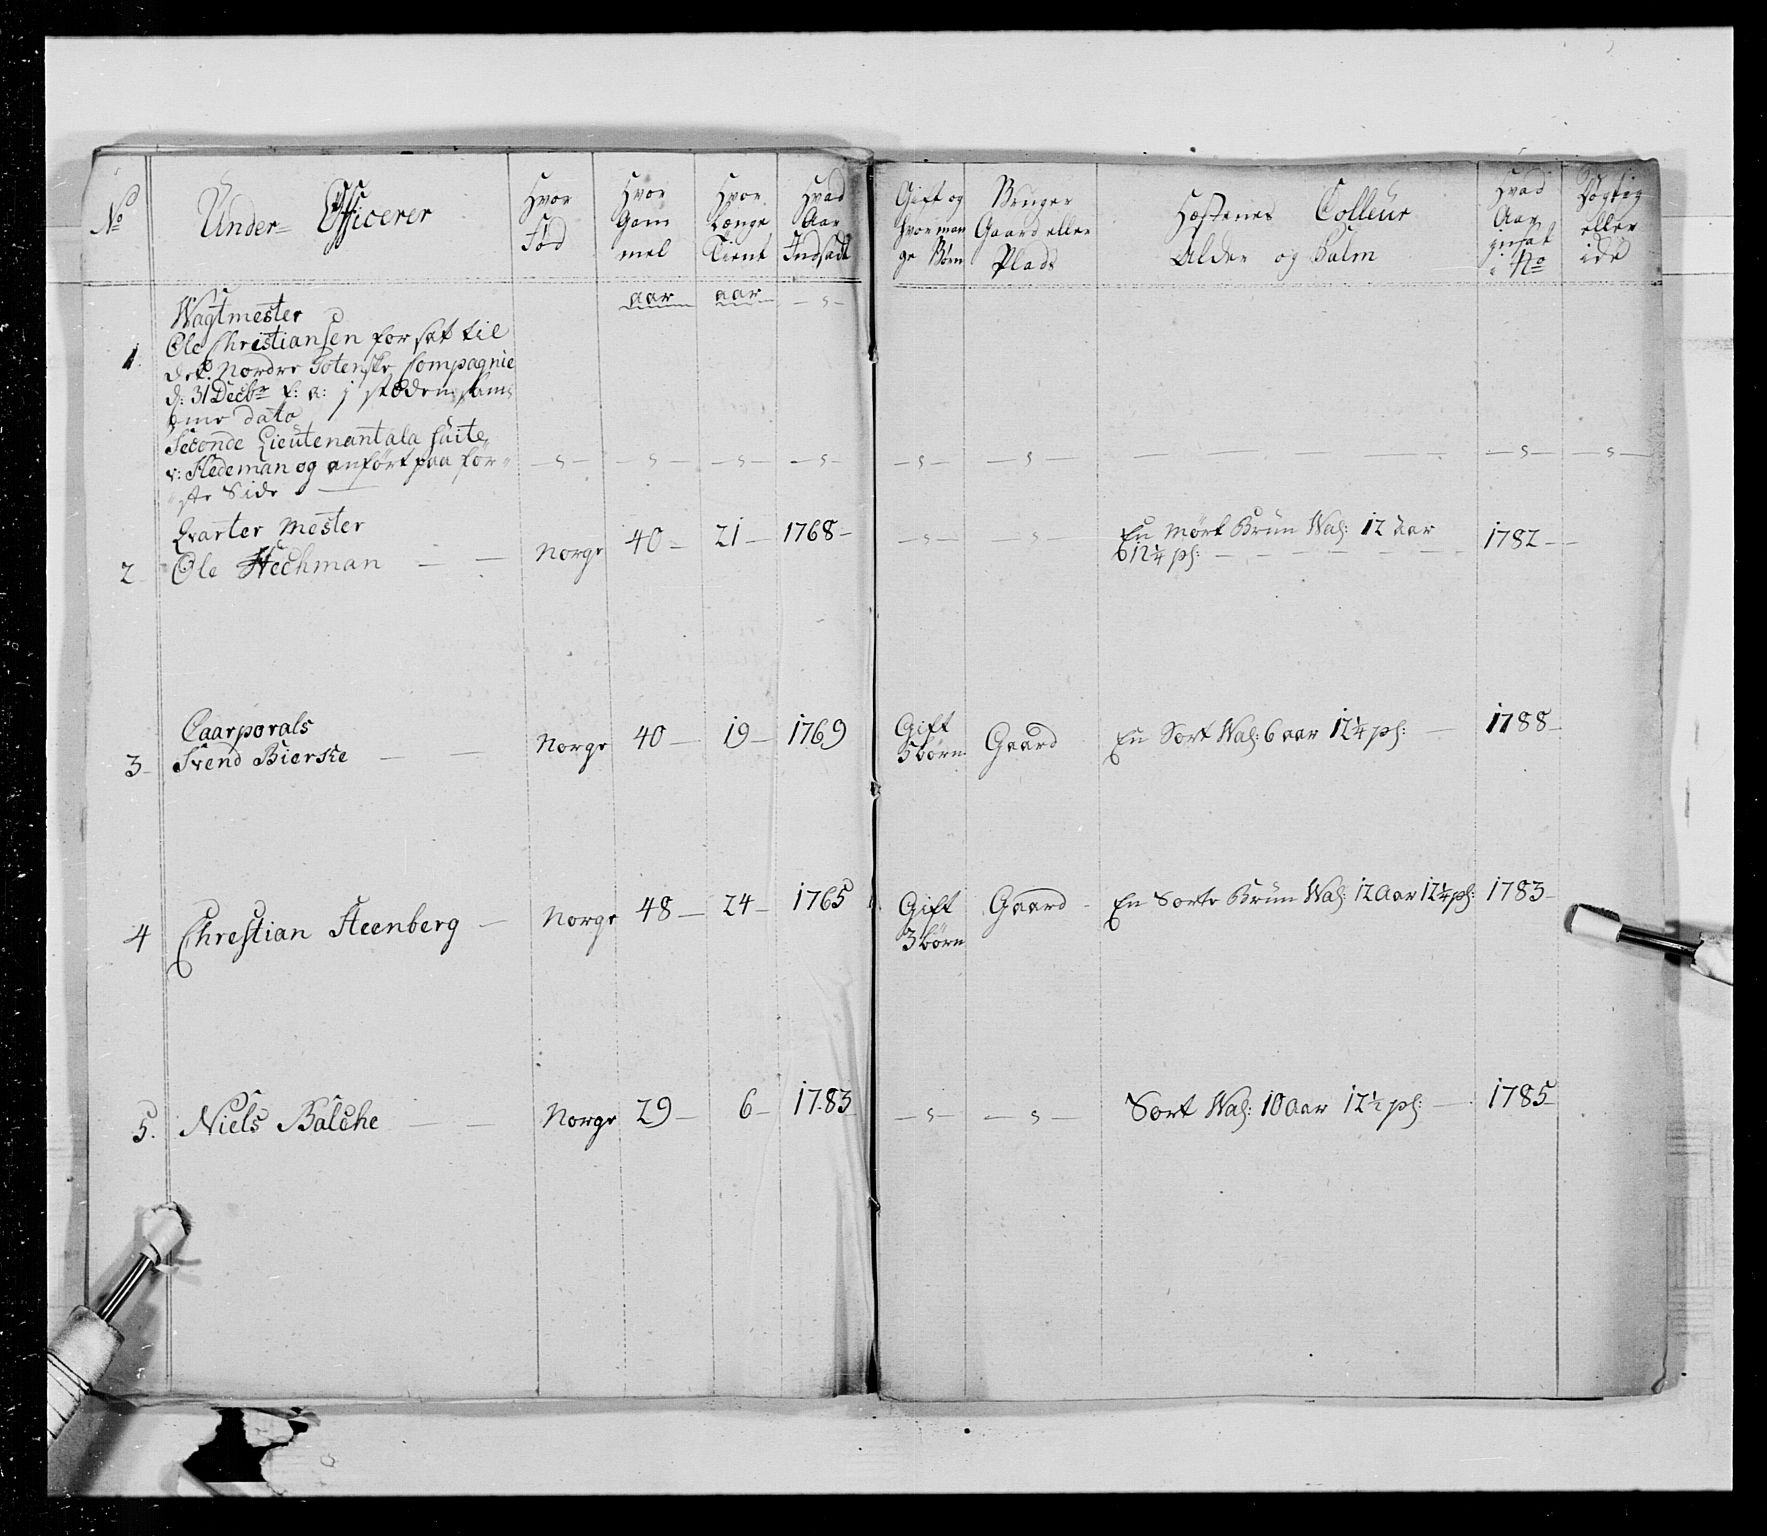 No
Under= Officerer
Hvor
Fød
Hvor
Gam
mel
Hvor
Længe
Tient
Hvad
Aar
Indsadt
Gift og
hvor man
ge Børn
Bruger
Gaard eller
Plads
Hæstenes Colleur
Alder og Palm
Hvad
Aar
insat
i No
Dygtig
eller
idø
aar aar — s —
Wagtmester
1. Ole Christiansen forsat til
det Nordre Totenske Compagnie
d: 31 Decbr f: a: j stæden sam,
me dato
Seconde Lieutenant ala suite
v: Hedeman og anført paa för=
ste Side — s — — s — — s — — s — — s — — s — — s — — s —
Qvarter Mester
2 Ole Hechman — — Norge 40 — 21 — 1768 — — s — — s — En mört Brun Wal: 12 Aar
6 12¼ pl: — 1782 —
Caarporals
3 Svend Bierke — — Norge 40 — 19 — 1769 Gift
5 börn Gaard En Sort Wal: 6 aar 12¼ pl: — 1788 —
4 Christian Steenberg — Norge 48 — 24 — 1765 Gift
3 börn Gaard — En Sorte Brun Wal: 12 Aar 12¼ pl: 1783 —
5. Niels Balche — — Norge 29 — 6 — 1783 — s — — s — Sort Wal: 10 Aar 12½ pl: — 1785 —